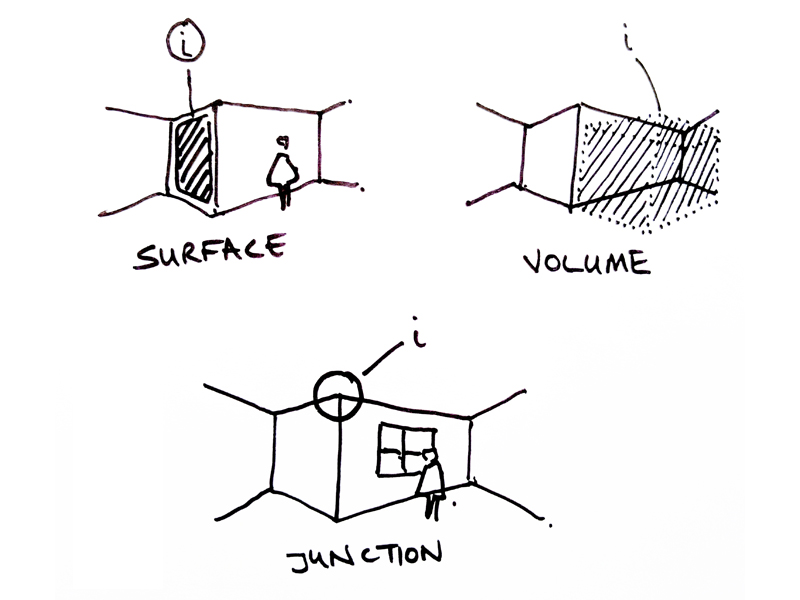 i
SURFACE
i
VOLUME
i
JUNCTION